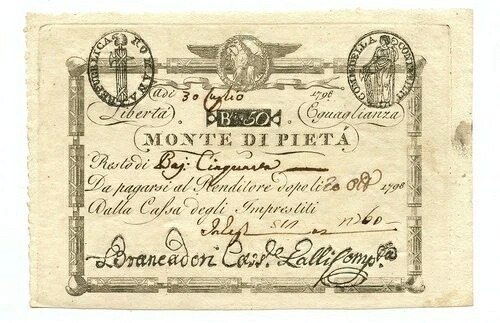 REPUBBLICA ROMANA
COM. DELLA
adi 30 Luglio 1798
Libertà B.50 Eguaglianza
MONTE DI PIETÁ
Resto di Baj. Cinquanta
Da pagarsi al Renditore dopo li 20 Ott 1798
Dalla Cassa degli Imprestiti
no 60
Brancadori Lalli Comp.ta